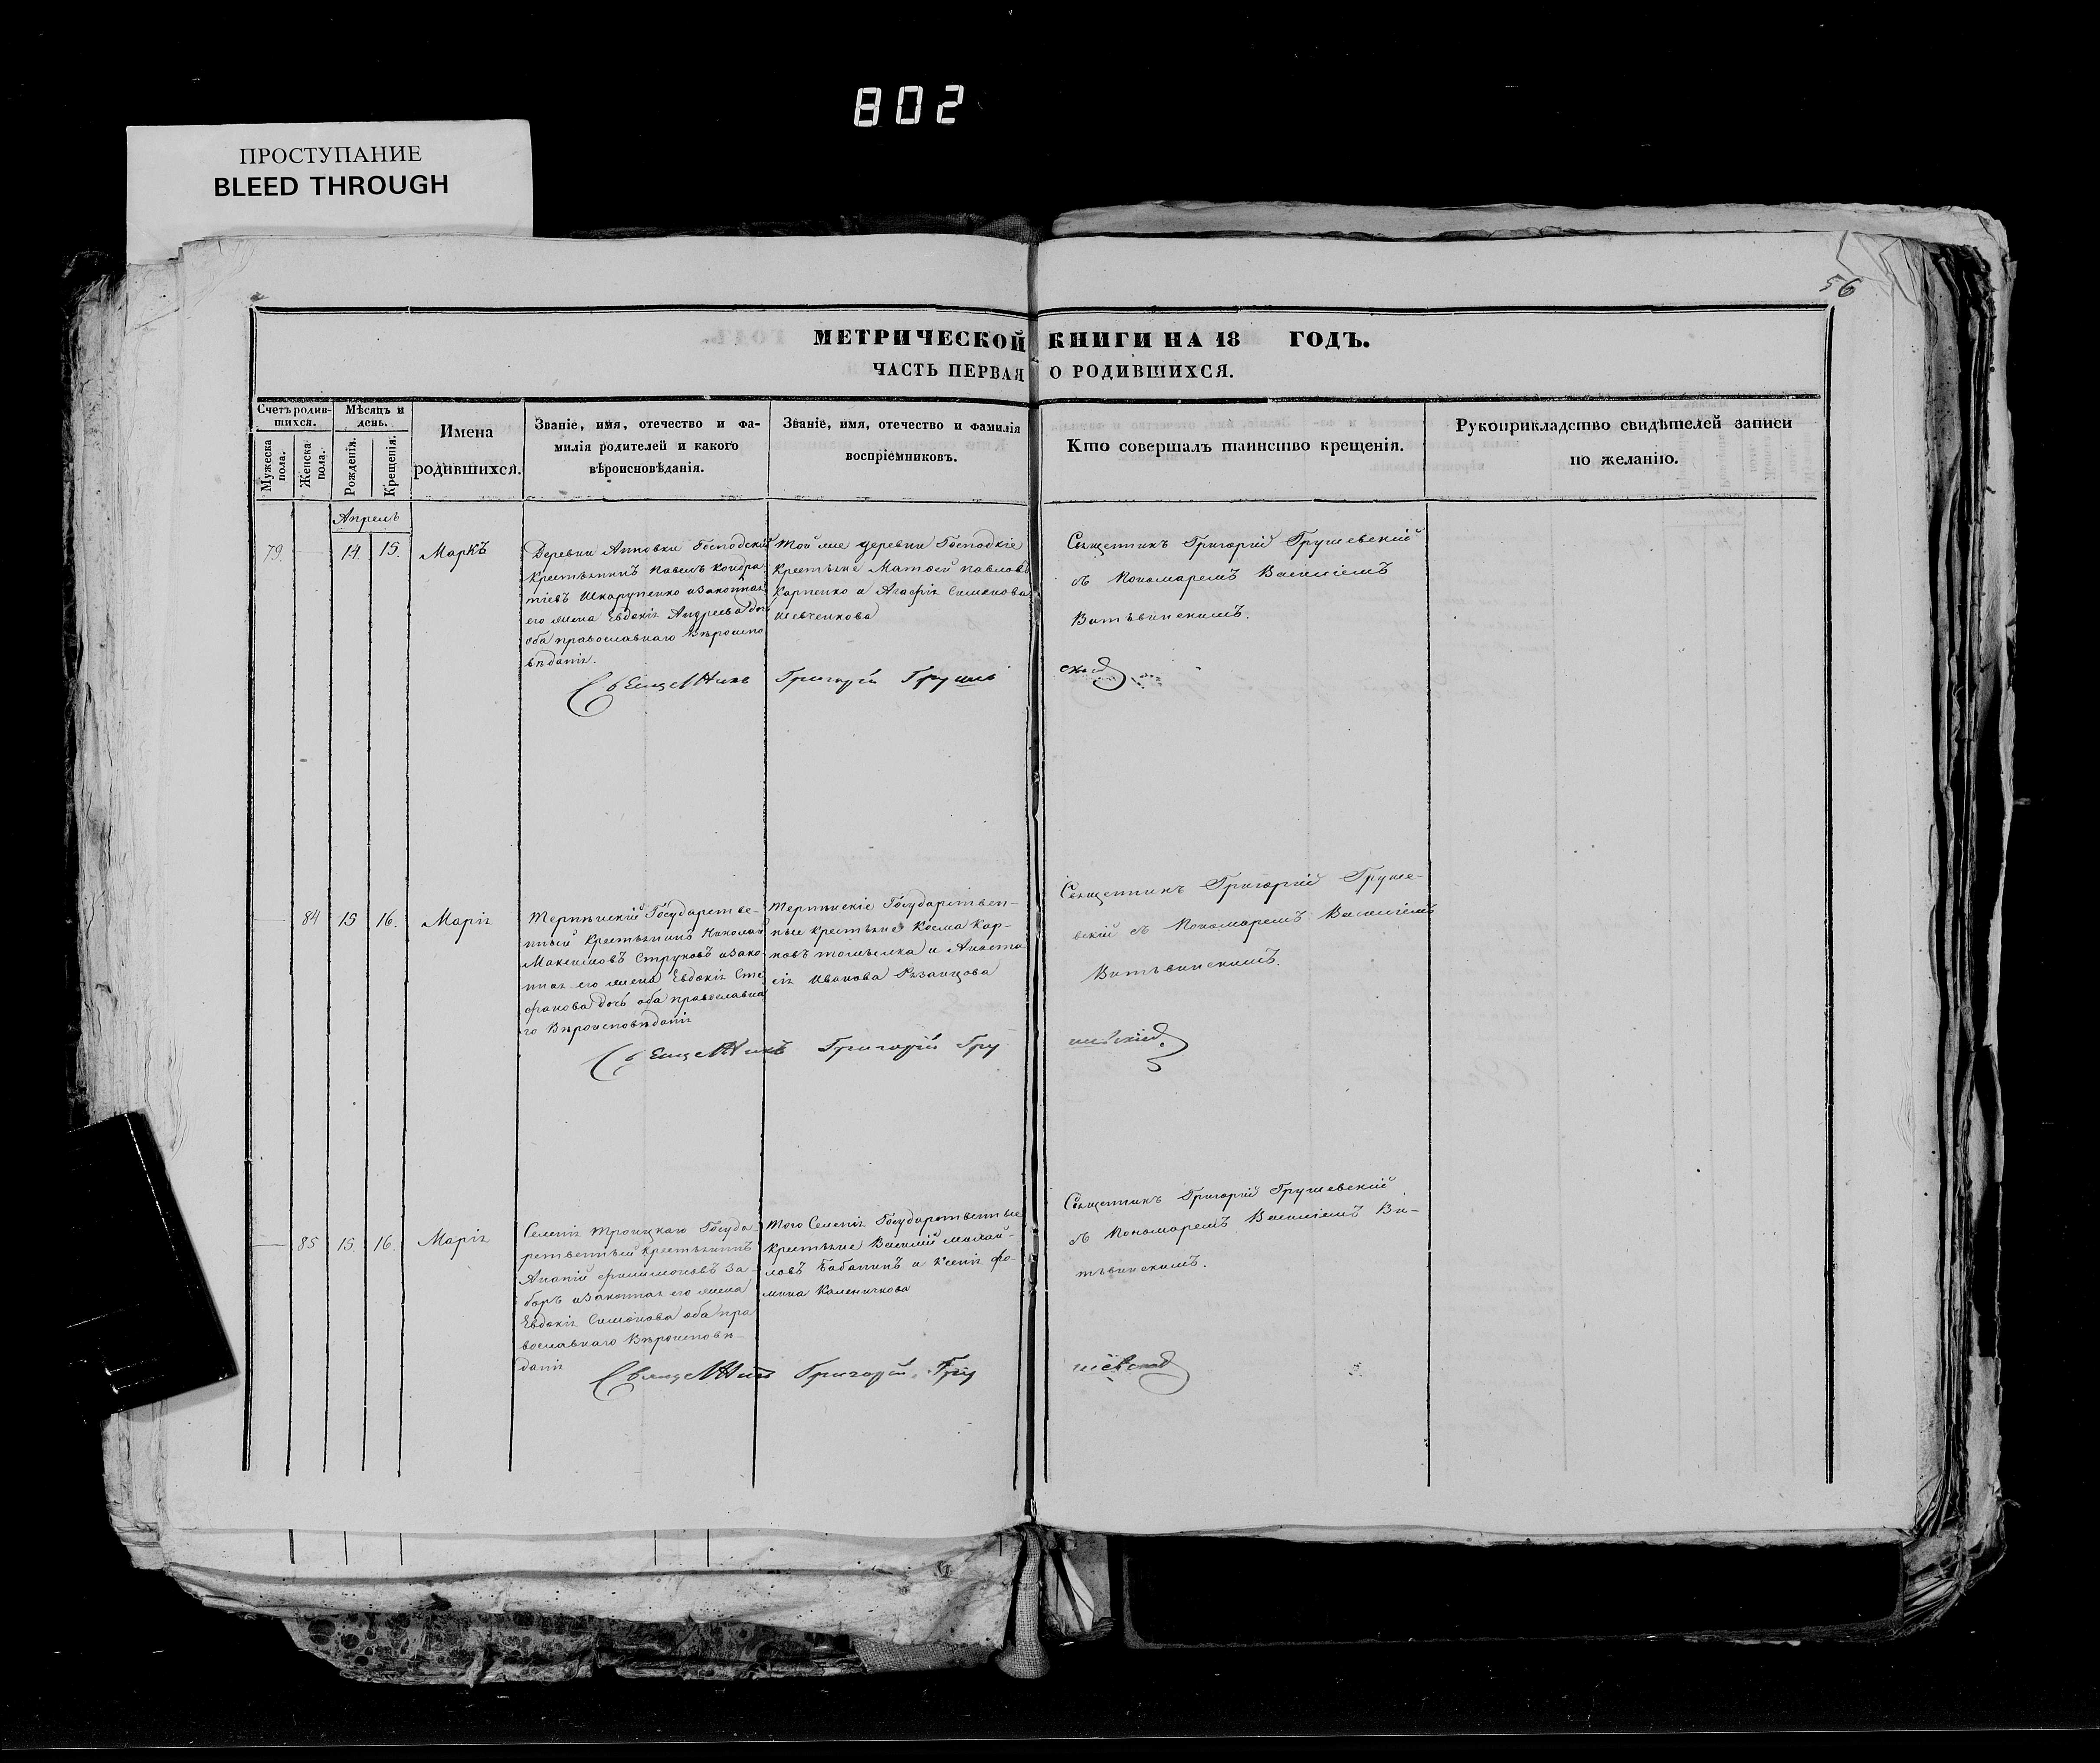 802
ПРОСТУПАНИЕ
BLEED THROUGH
56
МЕТРИЧЕСКОЙ КНИГИ НА 18 ГОДЪ.
ЧАСТЬ ПЕРВАЯ О РОДИВШИХСЯ.
Счетъ родив-
шихся.
Мужеска
пола.
Женска
пола.
Мѣсяцъ и
день.
Рожденія.
Крещенія.
Имена
родившихся.
Званіе, имя, отечество и фа-
милія родителей и какого
вѣроисповѣданія.
Званіе, имя, отечество и фамилія
воспріемниковъ.
Кто совершалъ таинство крещенія.
Рукоприкладство свидѣтелей записи
по желанію.
Апрель
79. 14. 15. Маркъ
Деревни Анновки Господскій
крестьянинъ Павелъ Кондра
тіевъ Шкарупенко и законная
его жена Евдокія Андреева дочь
оба православнаго Вѣроиспо
вѣданія.
Той же деревни Господскіе
крестьяне Матѳей Павловъ
Карпенко и Агафія Симонова
Шевченкова
Священникъ Григорій Грушевскій
съ Пономаремъ Василіемъ
Витвинскимъ.
Священникъ Григорій Грушевскій
84 15 16. Марія
Государстве-
нный крестьянинъ Николай
Максимовъ Струковъ и зако
нная его жена Евдокія Сте
фанова дочь оба православна
го Вѣроисповѣданія
Государствен-
ные крестьяне Косма Кар-
повъ и Анаста
сія Иванова Рязанцова
Священникъ Григорій Груше-
вскій съ Пономаремъ Василіемъ
Витвинскимъ.
Священникъ Григорій Грушевскій
85 15. 16. Марія
Селенія Троицкаго Госуда
рственный крестьянинъ
Ананій Филимоновъ За-
боръ и законная его жена
Евдокія Симонова оба пра
вославнаго Вѣроисповѣ-
данія
Того Селенія Государственные
крестьяне Василій Михай-
ловъ Бабанинъ и Ксенія Фо-
мина Каленичкова
Священникъ Григорій Грушевскій
съ Пономаремъ Василіемъ Ви-
твинскимъ.
Священникъ Григорій Грушевскій